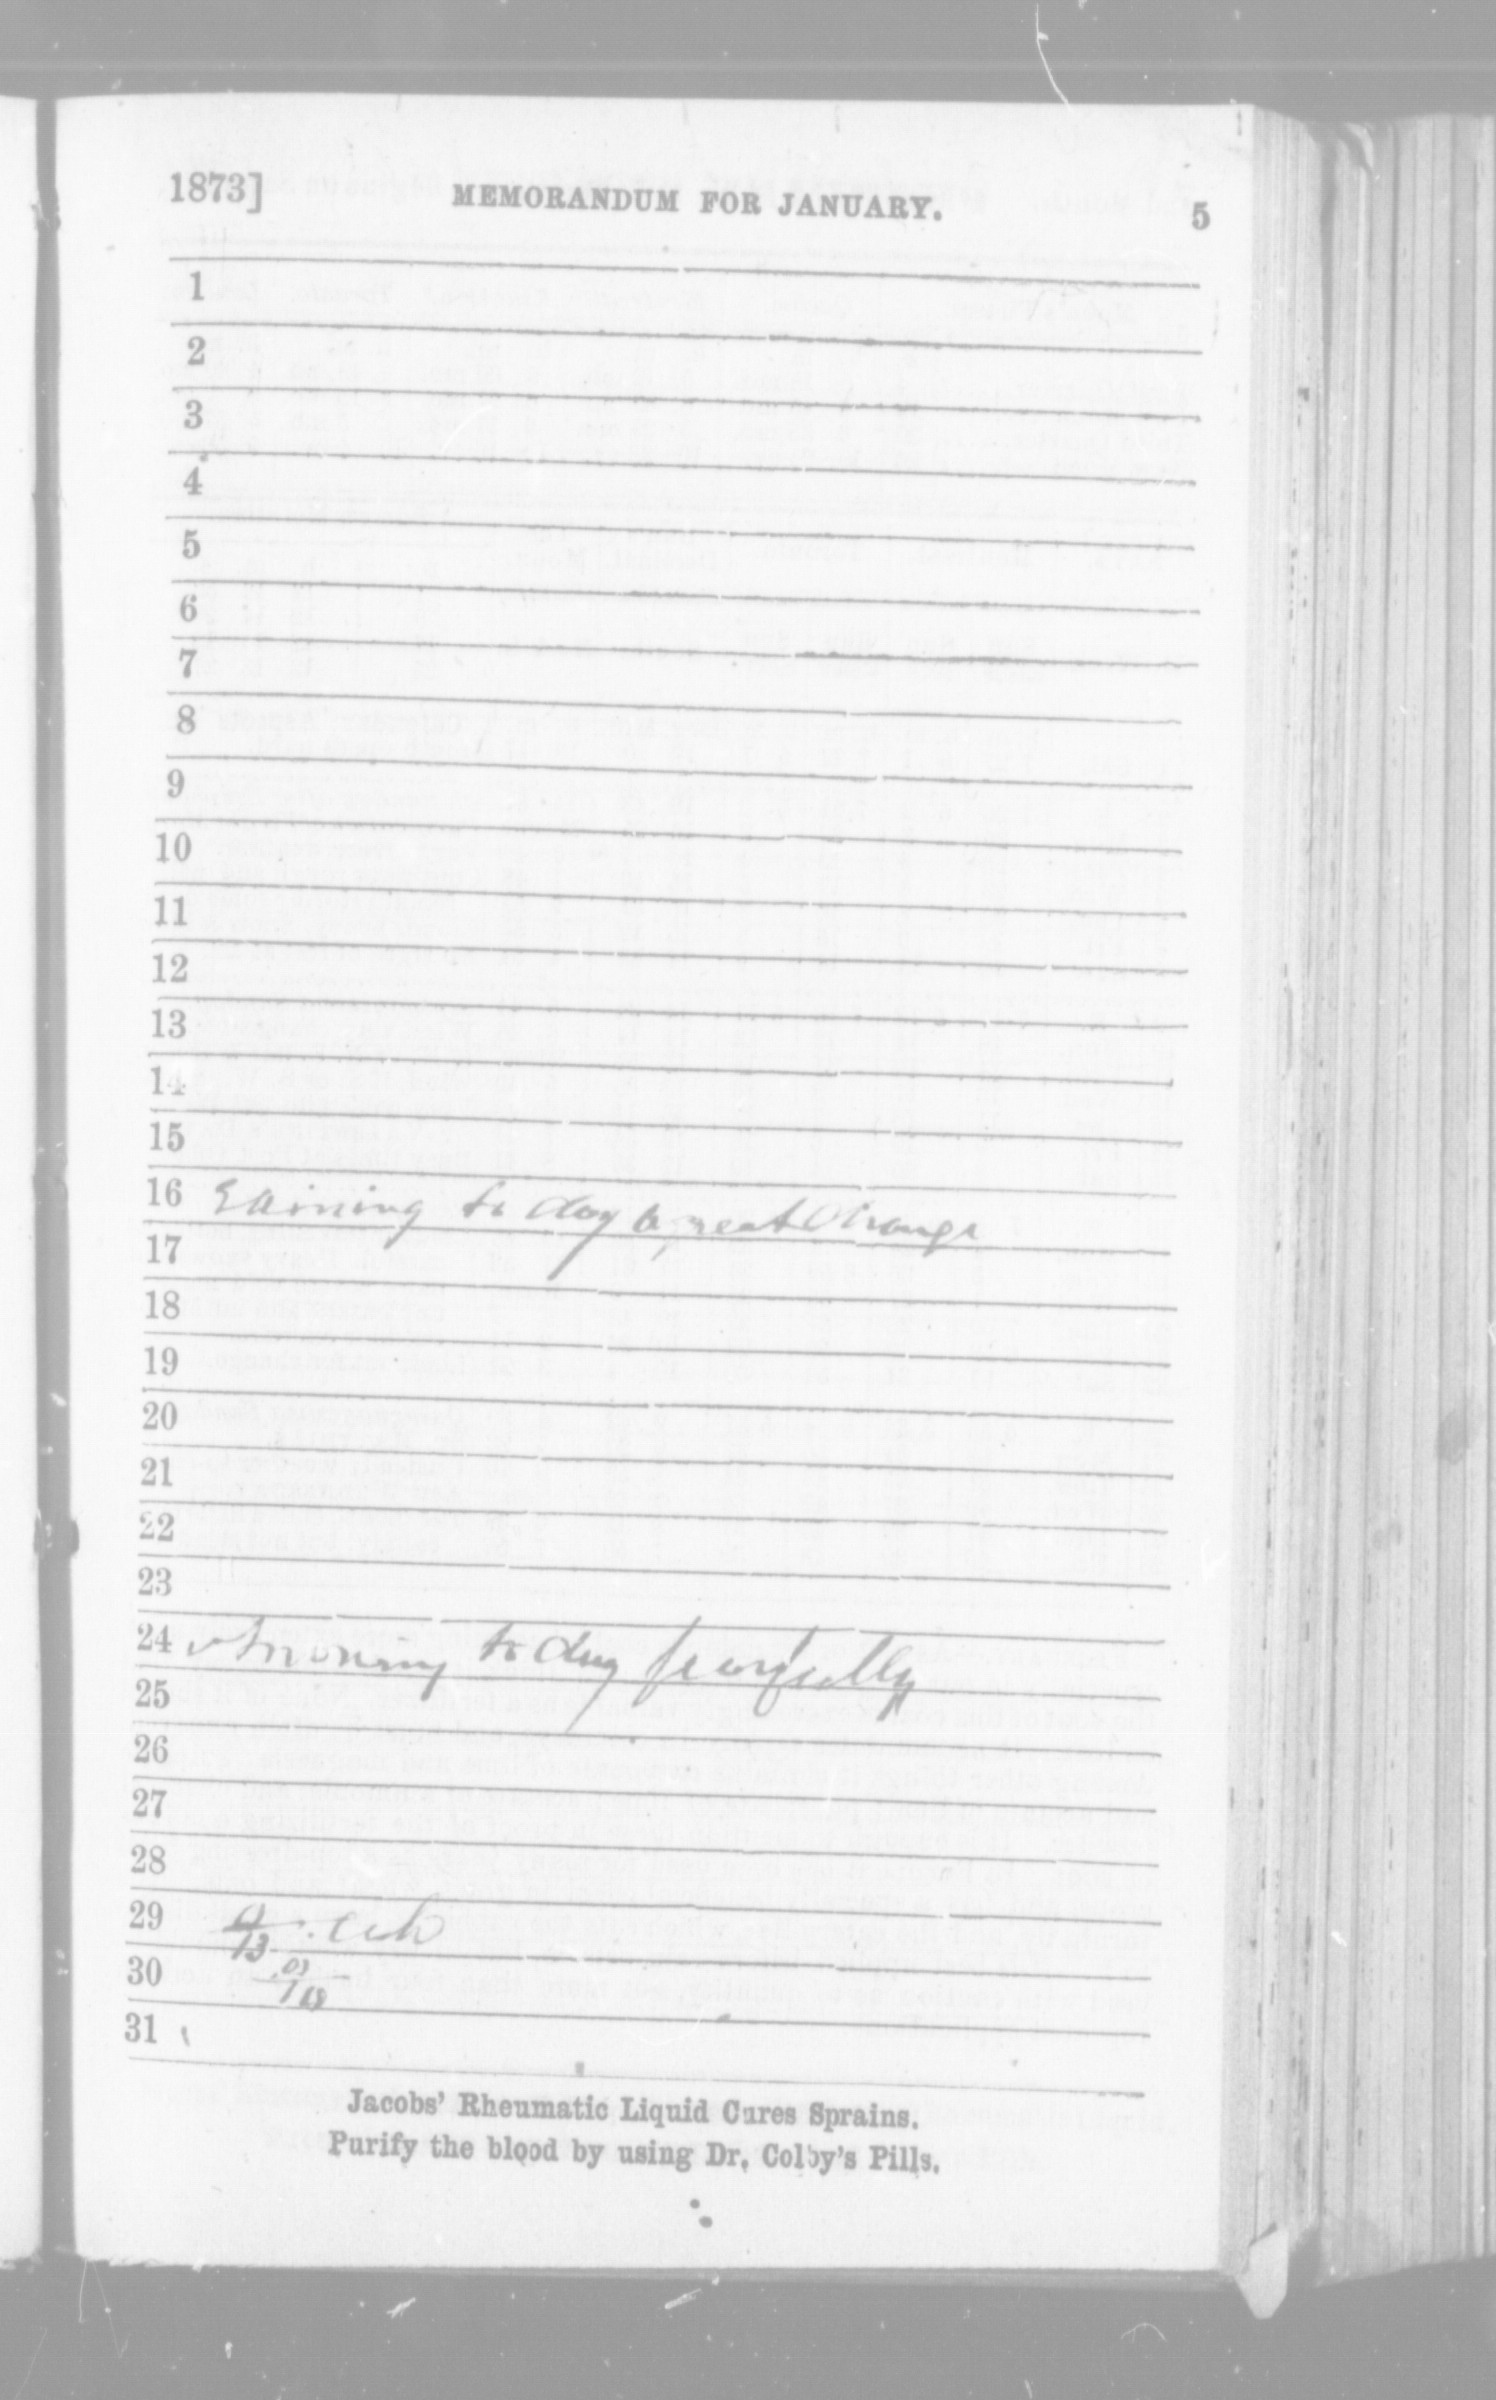 1873]
MEMORANDUM FOR JANUARY.
5
1
2
3
4
5
6
7
8
9
10
11
12
13
14
15
16 Raining to day a great change
17
18
19
20
21
22
23
24 storming to day fearfully
25
26
27
28
29
30
31
Jacobs' Rheumatic Liquid Cures Sprains.
Purify the blood by using Dr. Colby's Pills.